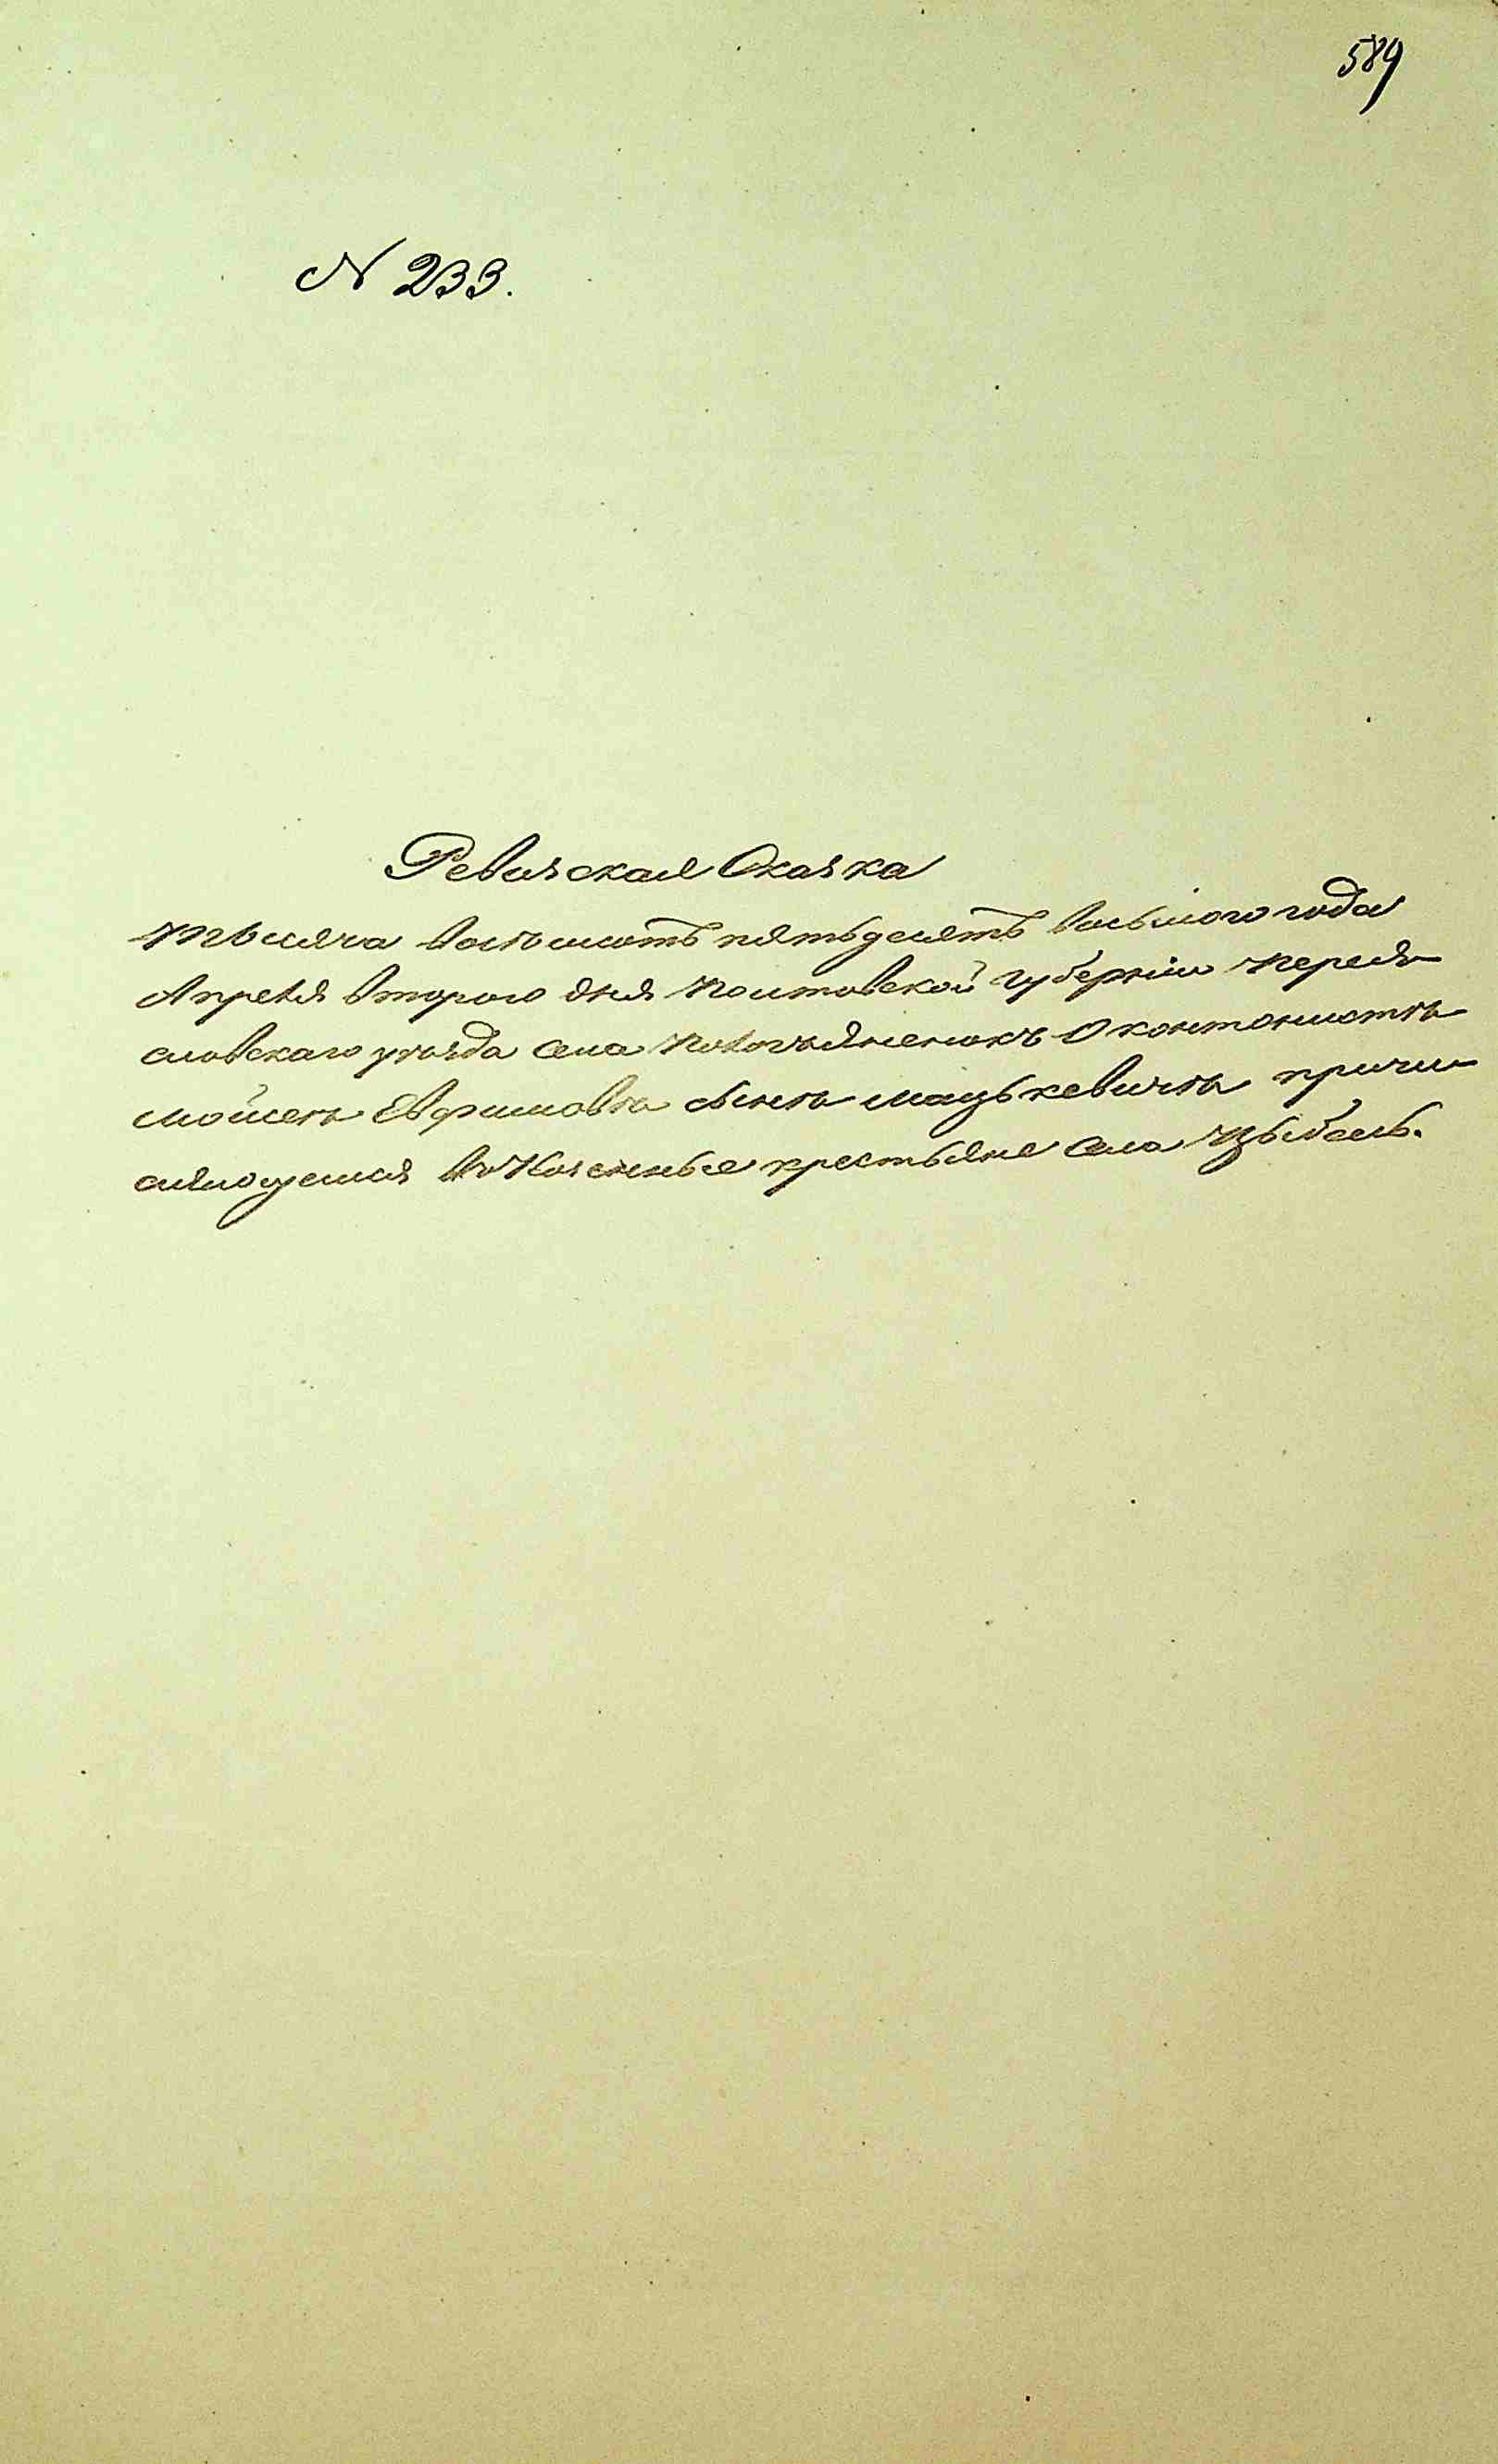 589
N 233.
Ревизская Сказка
тысяча восемьсотъ пятьдесятъ восьмого года
Апреля второго дня Полтавской губерніи Перея
славскаго уезда села о кантонистъ
Мойсей Евфимовъ сынъ Мацькевичъ причи
сляющемся въ Казенные крестьяне села Цыбель.